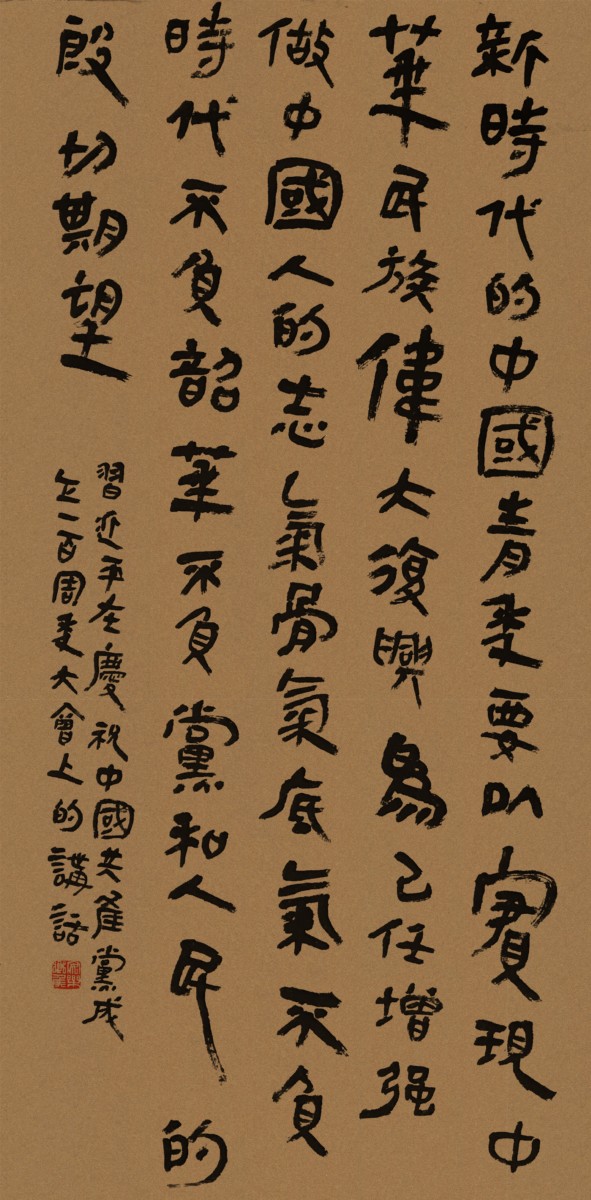 新時代的中國青年要以實現中
華民族偉大復興為己任增强
做中國人的志氣骨氣底氣不負
時代不負韶華不負黨和人民的
殷切期望
習近平在慶祝中國共產黨成
立一百周年大會上的講話